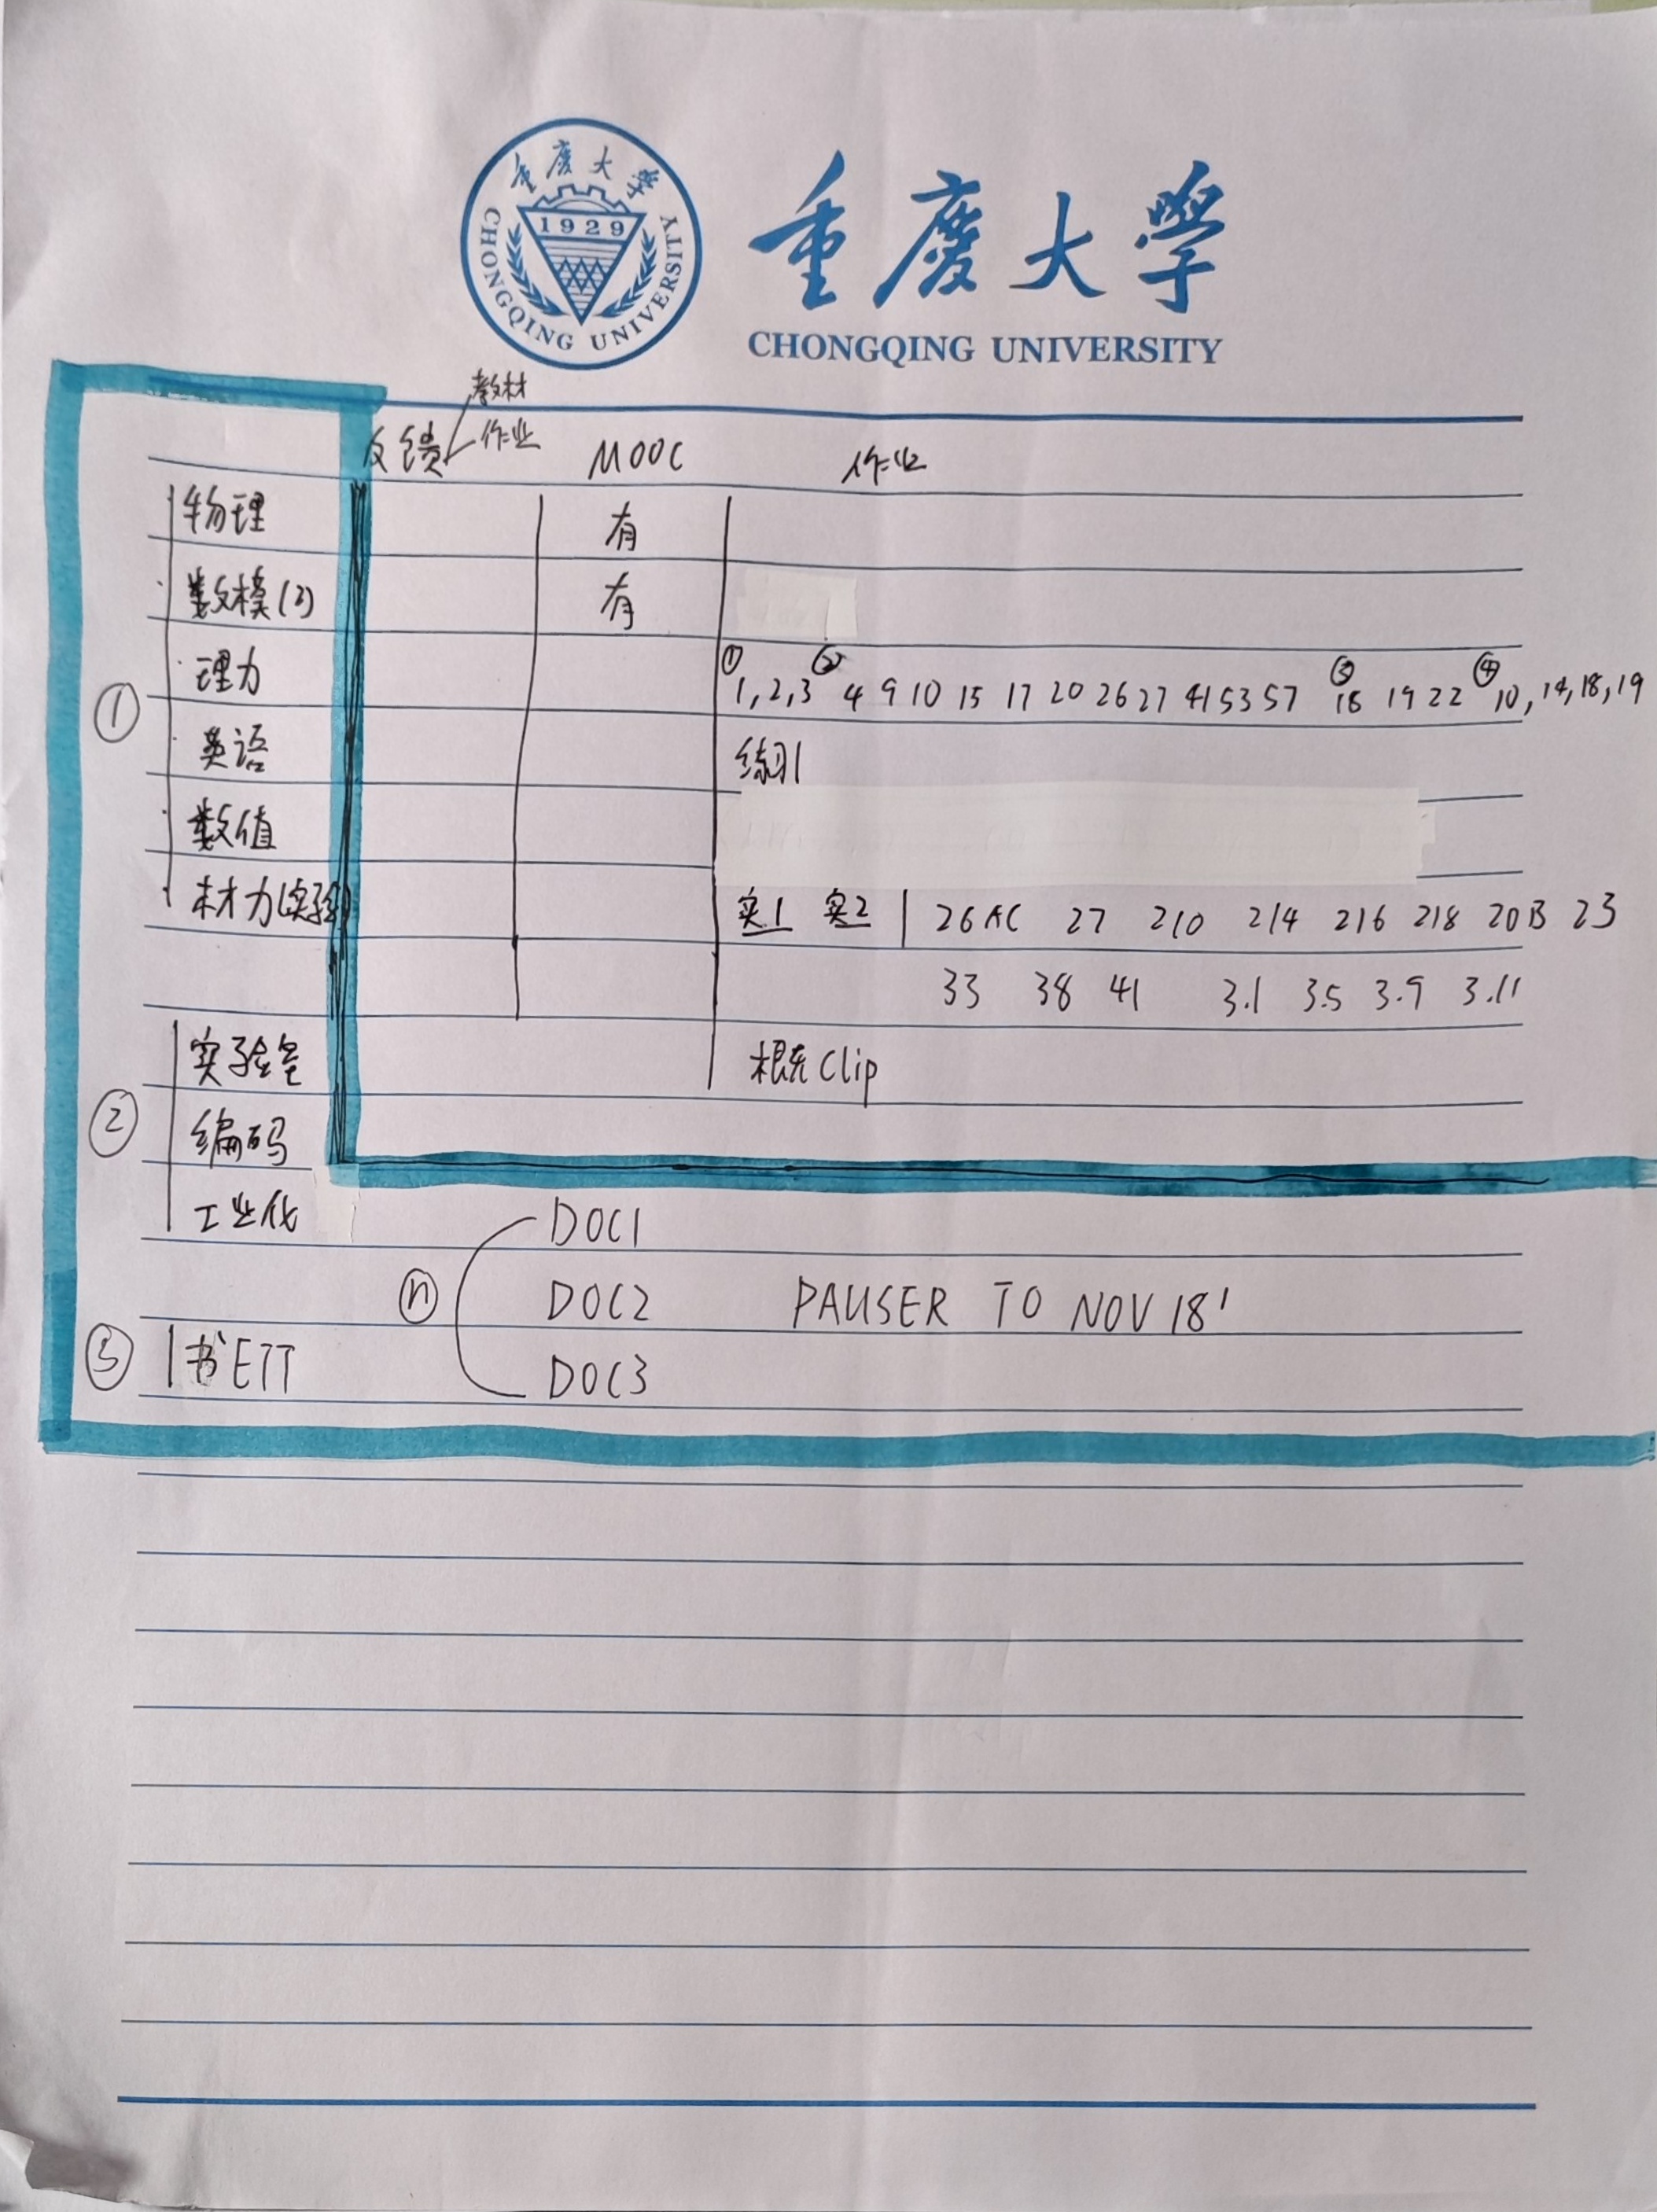 重庆大学
1929
CHONGQING UNIVERSITY
重慶大學
CHONGQING UNIVERSITY
教材
反馈 作业 MOOC 作业
物理 有
数模(2) 有
① 理力 ① 1,2,3 ② 4 9 10 15 17 20 26 27 41 53 57 ③ 18 19 22 ④ 10,14,18,19
英语 练习1
数值
材力(实验) 实1 实2 26AC 27 210 214 216 218 20B 23
33 38 41 3.1 3.5 3.9 3.11
实验室 Clip
② 编码
工业化 DOC1
n DOC2 PAUSER TO NOV 18'
③ 书ETT DOC3